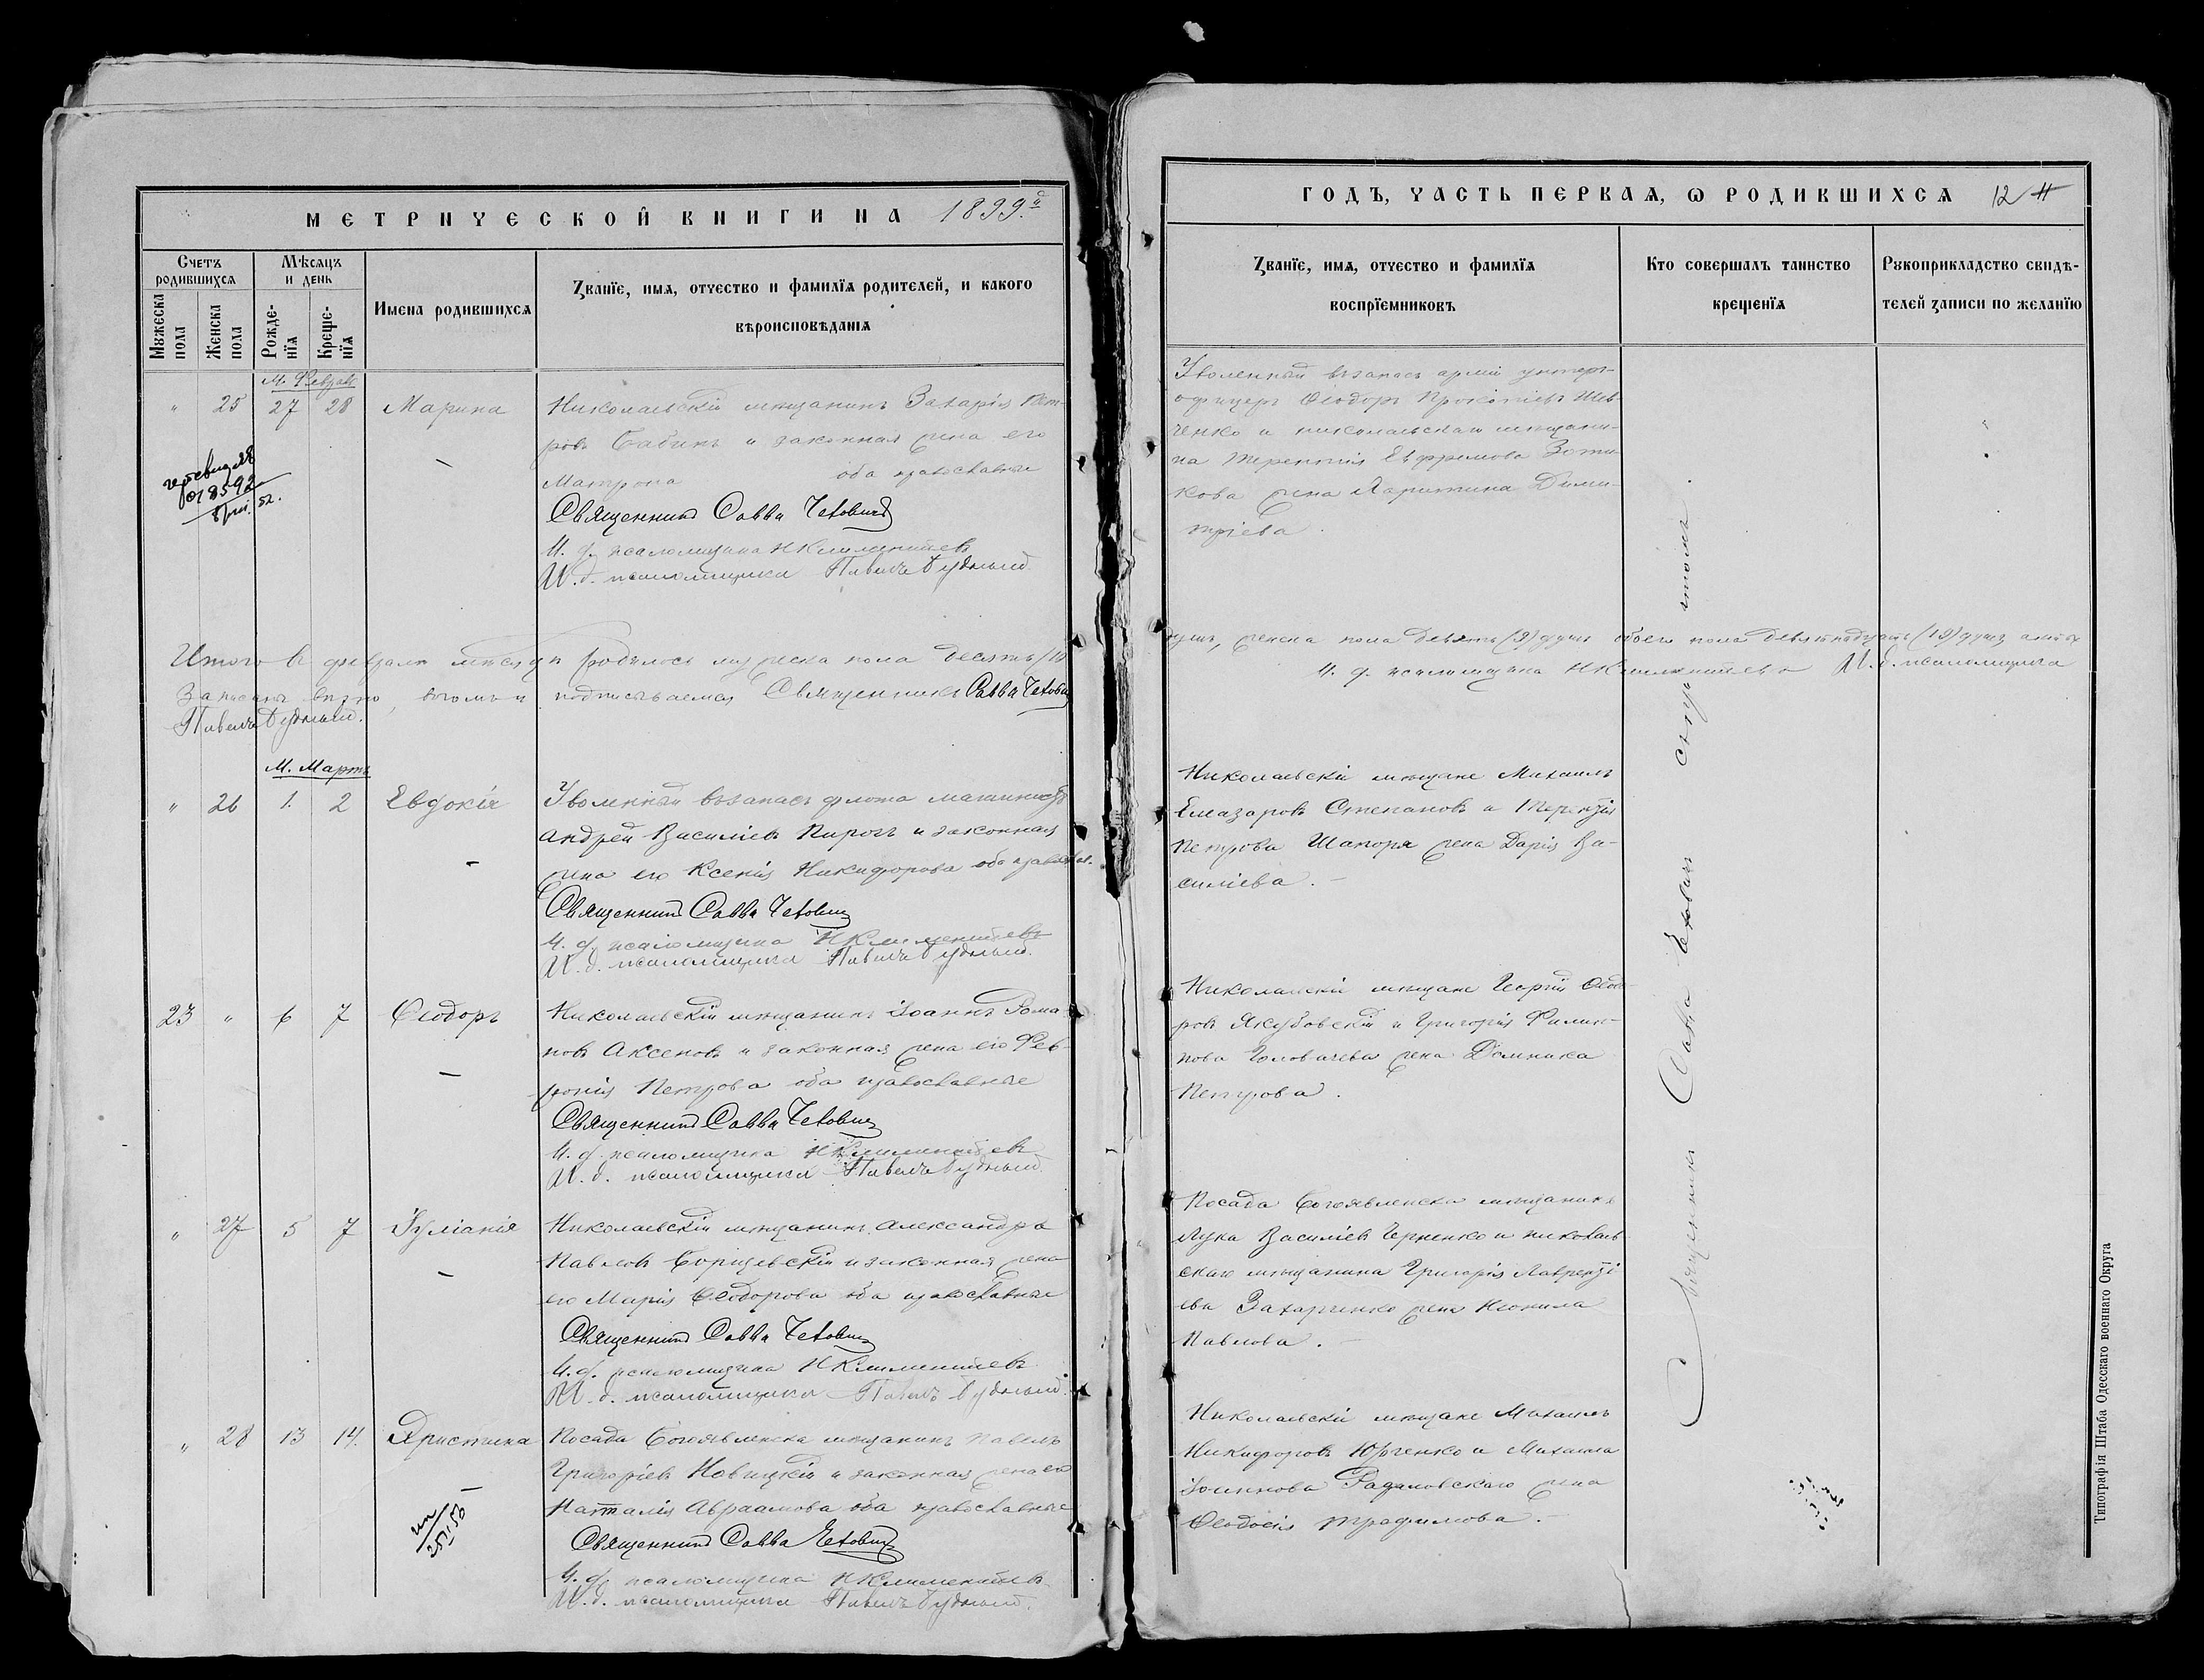 МЕТРИЧЕСКОЙ КНИГИ НА 1899.й
Счетъ родившихся
Мѣсяцъ и день
Мужеска пола
Женска пола
Рожде-нїя
Креще-нїя
Имена родившихся
Званїе, имя, отчество и фамилїя родителей, и какого
вѣроисповѣданїя
М. Февраль
" 25 27 28 Марина
Николаевскій мѣщанинъ Захарія Пет-
ровъ Бабинъ и законная жена его
Матрона оба православные
Священникъ Савва Чехович
И. д. псаломщика Н Климентьевъ
И. д. псаломщика Павелъ Будный
8592
52.
Итого въ февралѣ мѣсяцѣ родилось мужеска пола десять (10)
подписываемся Священникъ Савва Чехович
Павелъ Будный.
М. Мартъ
" 26 1. 2 Евдокія
Уволенный въ запасъ флота машинистъ
Андрей Василіевъ Пирогъ и законная
жена его Ксенія Никифорова оба православ.
Священникъ Савва Чехович
И. д. псаломщика Н Климентьевъ
И. д. псаломщика Павелъ Будный.
23 " 6 7 Ѳеодоръ
Николаевскій мѣщанинъ Іоаннъ Рома-
новъ Аксеновъ и законная жена его Фев-
ронія Петрова оба православные
Священникъ Савва Чехович
И. д. псаломщика Н Климентьевъ
И. д. псаломщика Павелъ Будный.
" 27 5 7 Іуліанія
Николаевскій мѣщанинъ Александръ
Павловъ Борщевскій и законная жена
его Марія Ѳеодорова оба православные
Священникъ Савва Чехович
И. д. псаломщика Н Климентьевъ
И. д. псаломщика Павелъ Будный.
" 28 13 14. Христина
Посада Богоявленска мѣщанинъ Павелъ
Григоріевъ Новицкій и законная жена его
Наталія Авраамова оба православные
Священникъ Савва Чехович
И. д. псаломщика Н Климентьевъ
И. д. псаломщика Павелъ Будный.
ГОДЪ, ЧАСТЬ ПЕРВАЯ, Ѡ РОДИВШИХСЯ 12
Званїе, имя, отчество и фамилїя
воспрїемниковъ
Кто совершалъ таинство
крещенїя
Рукоприкладство свидѣ-
телей записи по желанїю
Уволенный въ запасъ арміи унтеръ-
офицеръ Ѳеодоръ Прокопіевъ Шев-
ченко и николаевскаго мѣщани-
на Терентія Евфремова Зоти-
кова жена Харитина Дими-
тріева.
душъ, женска пола девять (9) душъ обоего пола девятнадцать (19) душъ,
И. д. псаломщика Н Климентьевъ И. д. псаломщика
Николаевскіе мѣщане Михаилъ
Елеазаровъ Степановъ и Терентія
Петрова Шапоря жена Дарія Ва-
силіева.
Николаевскіе мѣщане Георгій Ѳеодо-
ровъ Якубовскій и Григорія Филип-
пова Головачева жена Домника
Петрова.
Посада Богоявленска мѣщанинъ
Лука Василіевъ Черненко и николаев-
скаго мѣщанина Григорія Лавренті-
ева Захарченко жена Неонила
Павлова.
Николаевскіе мѣщане Михаилъ
Никифоровъ Юрченко и Михаила
Іоаннова Радаловскаго жена
Ѳеодосія Трофимова.
Священникъ Савва Чехович
Типографія Штаба Одесскаго военнаго Округа